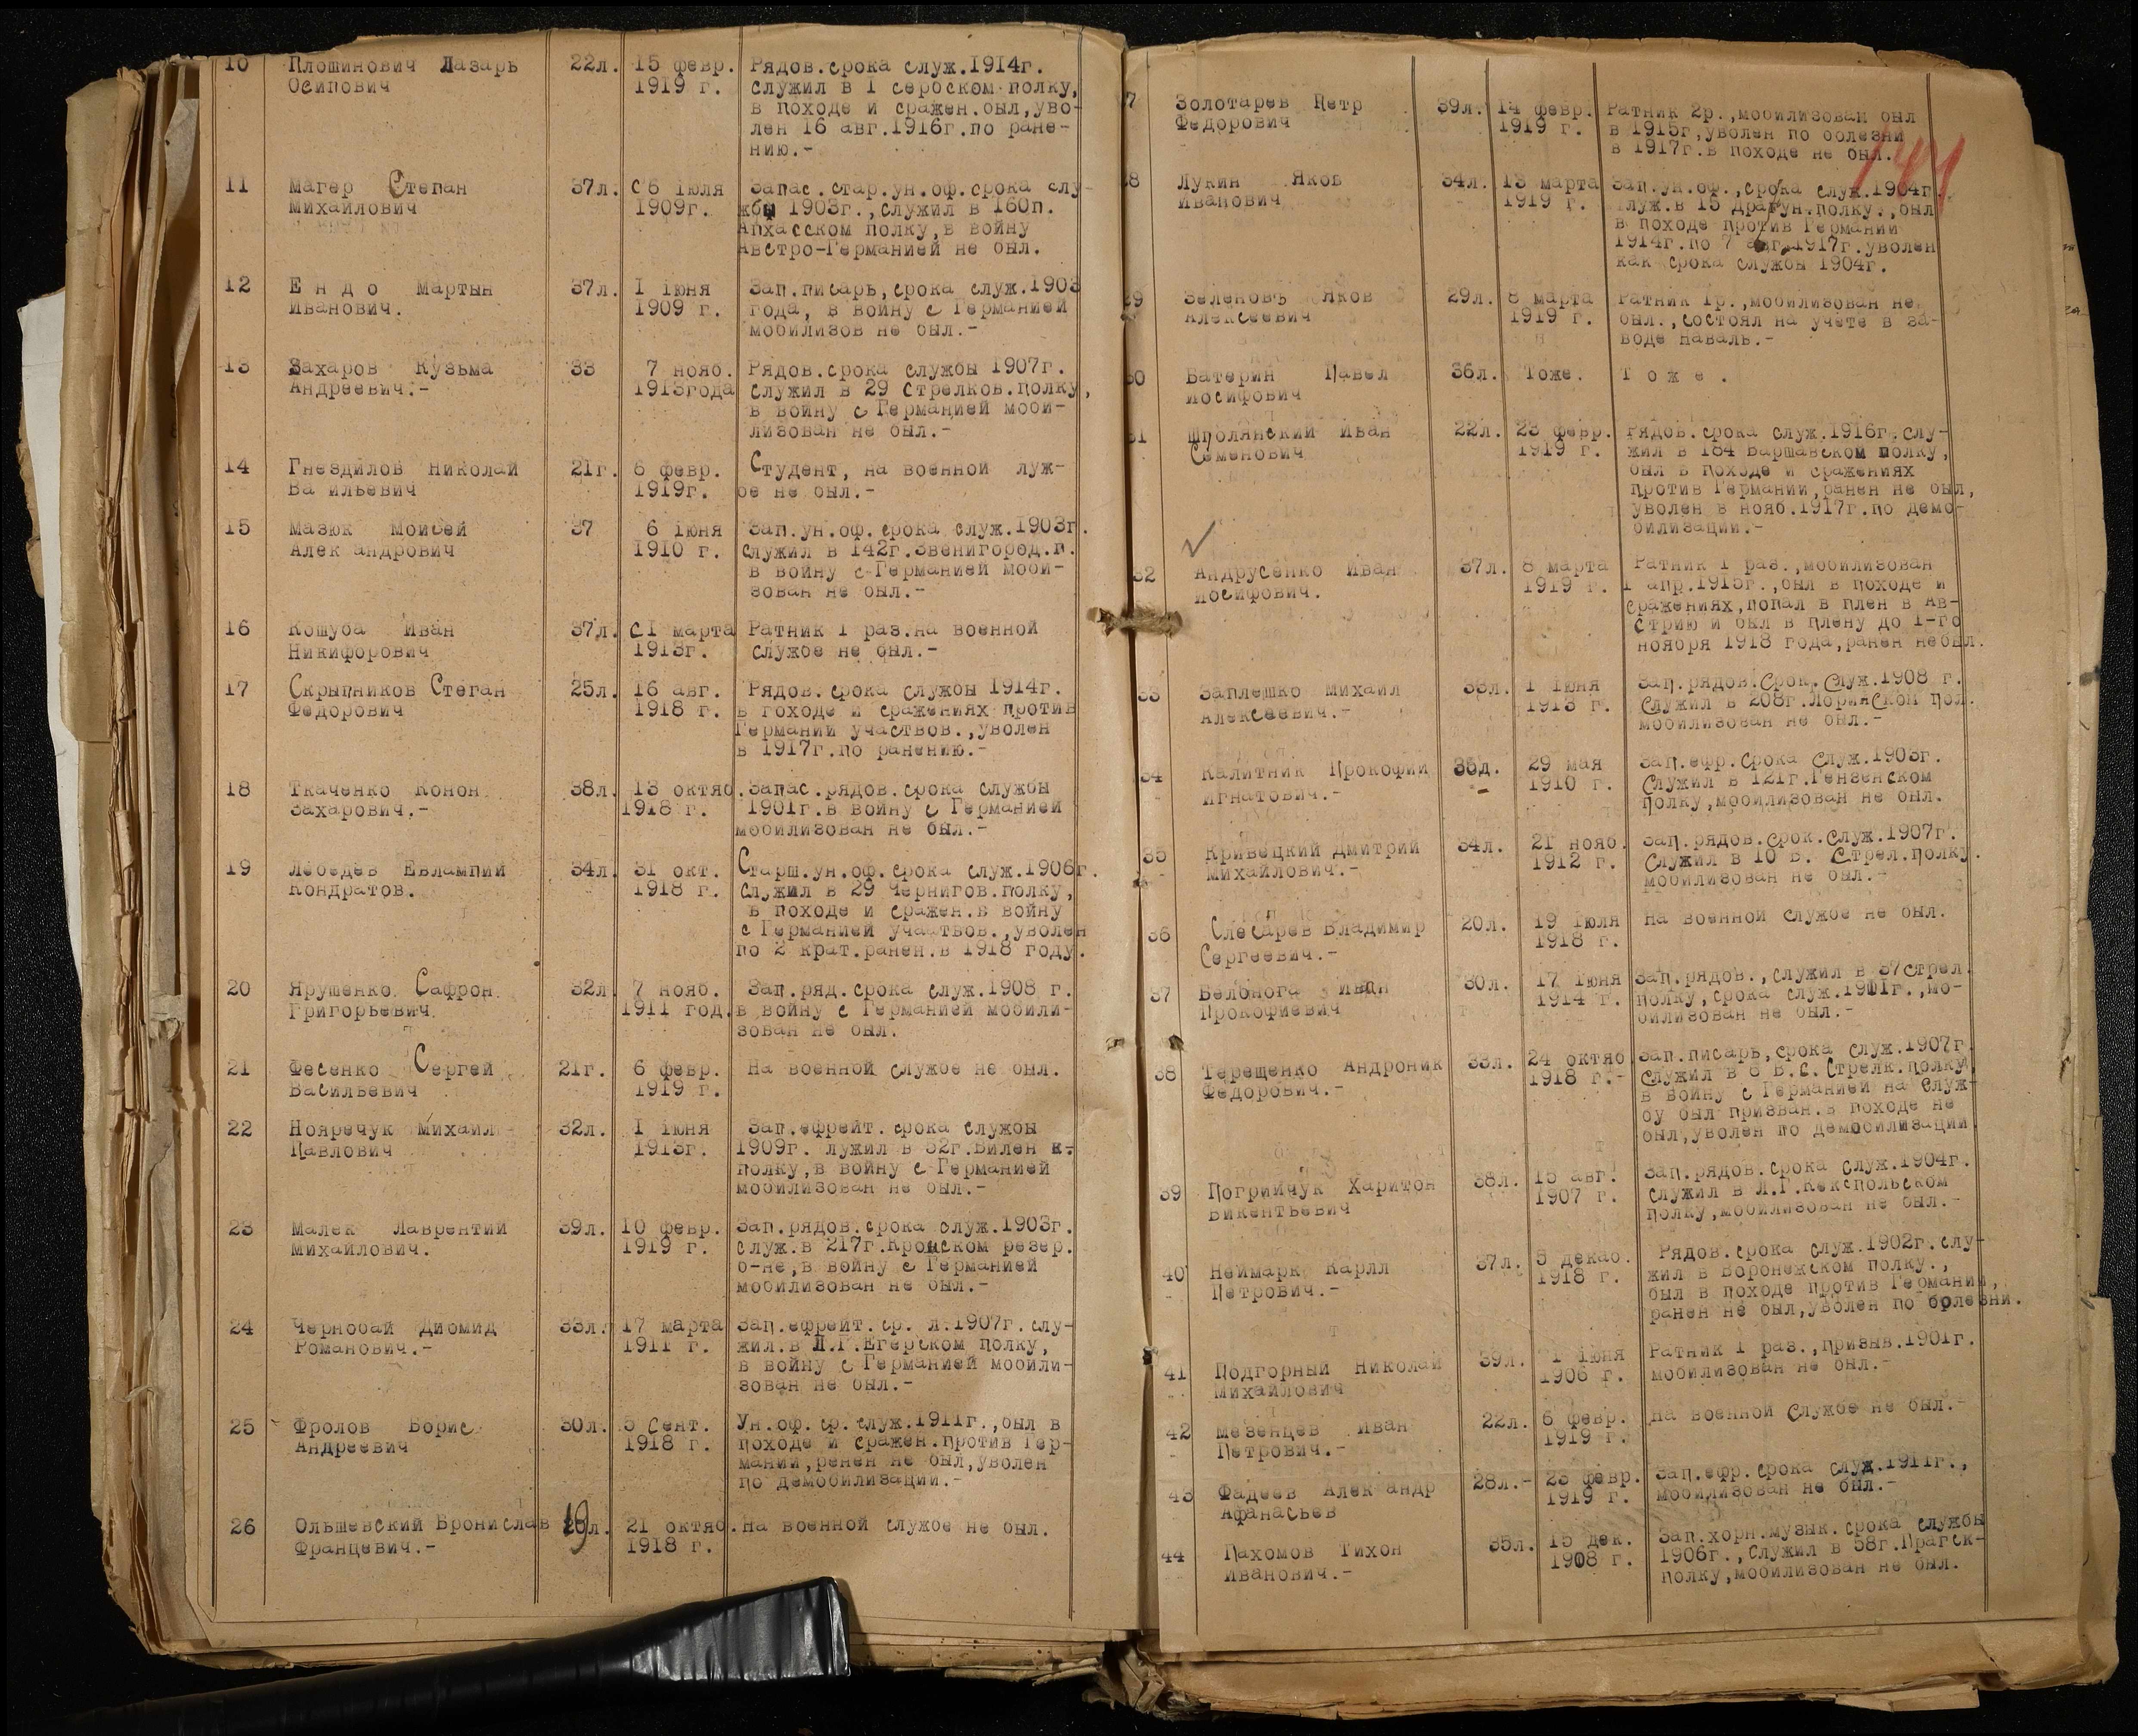 10 Плошинович Лазарь 22л. 15 февр. Рядов.срока служ.1914г.
Осипович 1919 г. служил в I сербском полку,
в походе и сражен.был,уво-
лен 16 авг.1916г.по ране-
нию.-
11 Магер Степан 37л. С6 Iюля Запас.стар.ун.оф.срока слу-
Михайлович 1909г. жбы 1903г.,служил в 160п.
Апхасском полку,в войну
Австро-Германией не был.
12 Е н д о Мартын 37л. I Iюня Зап.писарь,срока служ.1903
Иванович. 1909 г. года, в войну с Германией
мобилизов не был.-
13 Захаров Кузьма 33 7 нояб. Рядов.срока службы 1907г.
Андреевич.- 1913года служил в 29 Стрелков.полку,
в войну с Германией моби-
лизован не был.-
14 Гнездилов Николай 21г. 6 февр. Студент, на военной луж-
Ва ильевич 1919г. бе не был.-
15 Мазюк Моисей 37 6 Iюня Зап.ун.оф.срока служ.1903г.
Алек андрович 1910 г. служил в 142г.Звенигород.п.
в войну с Германией моби-
зован не был.-
16 Кошуба Иван 37л. С1 марта Ратник I раз.на военной
Никифорович 1913г. службе не был.-
17 Скрыпников Стеган 25л. 16 авг. Рядов.срока службы 1914г.
Федорович 1918 г. в гоходе и сражениях против
Германии участвов.,уволен
в 1917г.по ранению.-
18 Ткаченко Конон 38л. 13 октяб. Запас.рядов.срока службы
Захарович.- 1918 г. 1901г.в войну с Германией
мобилизован не был.-
19 Лебедев Евлампий 34л. 31 окт. Старш.ун.оф.срока служ.1906г.
Кондратов. 1918 г. служил в 29 Чернигов.полку,
в походе и сражен.в войну
с Германией участвов.,уволен
по 2 крат.ранен.в 1918 году.
20 Ярушенко Сафрон 32л. 7 нояб. Зап.ряд.срока служ.1908 г.
Григорьевич 1911 год. в войну с Германией мобили-
зован не был.
21 Фесенко Сергей 21г. 6 февр. На военной службе не был.
Васильевич 1919 г.
22 Нояречук Михаил 32л. I Iюня Зап.ефрейт.срока службы
Павлович 1913г. 1909г. лужил в 52г.Вилен к.
полку,в войну с Германией
мобилизован не был.-
23 Малек Лаврентий 39л. 10 февр. Зап.рядов.срока служ.1903г.
Михайлович. 1919 г. служ.в 217г.Кромском резер.
б-не,в войну с Германией
мобилизован не был.-
24 Чернобай Диомид 33л. 17 марта Зап.ефрейт.ср. л.1907г.слу-
Романович.- 1911 г. жил.в Л.Г.Егерском полку,
в войну с Германией мобили-
зован не был.-
25 Фролов Борис 30л. 5 Сент. Ун.оф.ср.служ.1911г.,был в
Андреевич 1918 г. походе и сражен.против Гер-
мании,ренен не был,уволен
по демобилизации.-
26 Ольшевский Бронислав 19л. 21 октяб. На военной службе не был.
Францевич.- 1918 г.
141
7 Золотарев Петр 39л. 14 февр. Ратник 2р.,мобилизован был
Федорович 1919 г. в 1915г,уволен по болезни
в 1917г.в походе не был.
8 Лукин Яков 34л. 13 марта Зап.ун.оф.,срока служ.1904г.
Иванович 1919 г. луж.в 15 драгун.полку.,был
в походе против Германии
1914г.по 7 авг.1917г.уволен
как срока службы 1904г.
29 Зеленовъ Яков 29л. 8 марта Ратник Iр.,мобилизован не
Алексеевич 1919 г. был.,состоял на учете в за-
воде Наваль.-
30 Батерин Павел 36л. Тоже. Т о ж е .
Иосифович
31 Шполянский Иван 22л. 23 февр. Рядов.срока служ.1916г.слу-
Семенович 1919 г. жил в 184 Варшавском полку,
был в походе и сражениях
против Германии,ранен не был,
уволен в нояб.1917г.по демо-
билизации.-
32 Андрусенко Иван 37л. 8 марта Ратник I раз.,мобилизован
Иосифович. 1919 г. I апр.1915г.,был в походе и
сражениях,попал в плен в Ав-
стрию и был в плену до I-го
ноября 1918 года,ранен небыл.
33 Заплешко Михаил 33л. I Iюня Зап.рядов.Срок.Служ.1908 г.
Алексеевич.- 1913 г. Служил в 208г.Лорийском пол.
мобилизован не был.-
34 Калитник Прокофий 36л. 29 мая Зап.ефр.Срока Служ.1903г.
Игнатович.- 1910 г. Служил в 121г.Гензенском
полку,мобилизован не был.
35 Кривецкий Дмитрий 34л. 21 нояб. Зап.рядов.срок.Служ.1907г.
Михайлович.- 1912 г. Служил в 10 В. Стрел.полку.
мобилизован не был.-
36 Слесарев Владимир 20л. 19 Iюля На военной службе не был.
Сергеевич.- 1918 г.
37 Белонога Иван 30л. 17 Iюня Зап.рядов.,служил в 37стрел.
Прокофиевич 1914 г. полку,срока служ.1911г.,мо-
билизован не был.-
38 Терещенко Андроник 33л. 24 октяб. Зап.писарь,срока служ.1907г.
Федорович.- 1918 г.- Служил в 8 В.С.Стрелк.полку,
в войну с Германией на служ-
бу был призван.в походе не
был,уволен по демобилизации
39 Погрийчук Харитон 38л. 15 авг. Зап.рядов.срока служ.1904г.
Викентьевич 1907 г. служил в Л.Г.Кекспольском
полку,мобилизован не был.-
40 Неймарк Карлл 37л. 5 декаб. Рядов.срока служ.1902г.слу-
Петрович.- 1918 г. жил в Воронежском полку.,
был в походе против Германии,
ранен не был,уволен по болезни.
41 Подгорный Николай 39л. 1 Iюня Ратник I раз.,призыв.1901г.
Михайлович 1906 г. мобилизован не был.-
42 Мезенцев Иван 22л. 6 февр. На военной Службе не был.-
Петрович.- 1919 г.
43 Фадеев Алек андр 28л.- 23 февр. Зап.ефр.срока служ.1911г.,
Афанасьев 1919 г. мобилизован не был.-
44 Пахомов Тихон 35л. 15 дек. Зап.хорн.музык.срока службы
Иванович.- 1908 г. 1906г.,Служил в 58г.Прагск-
полку,мобилизован не был.